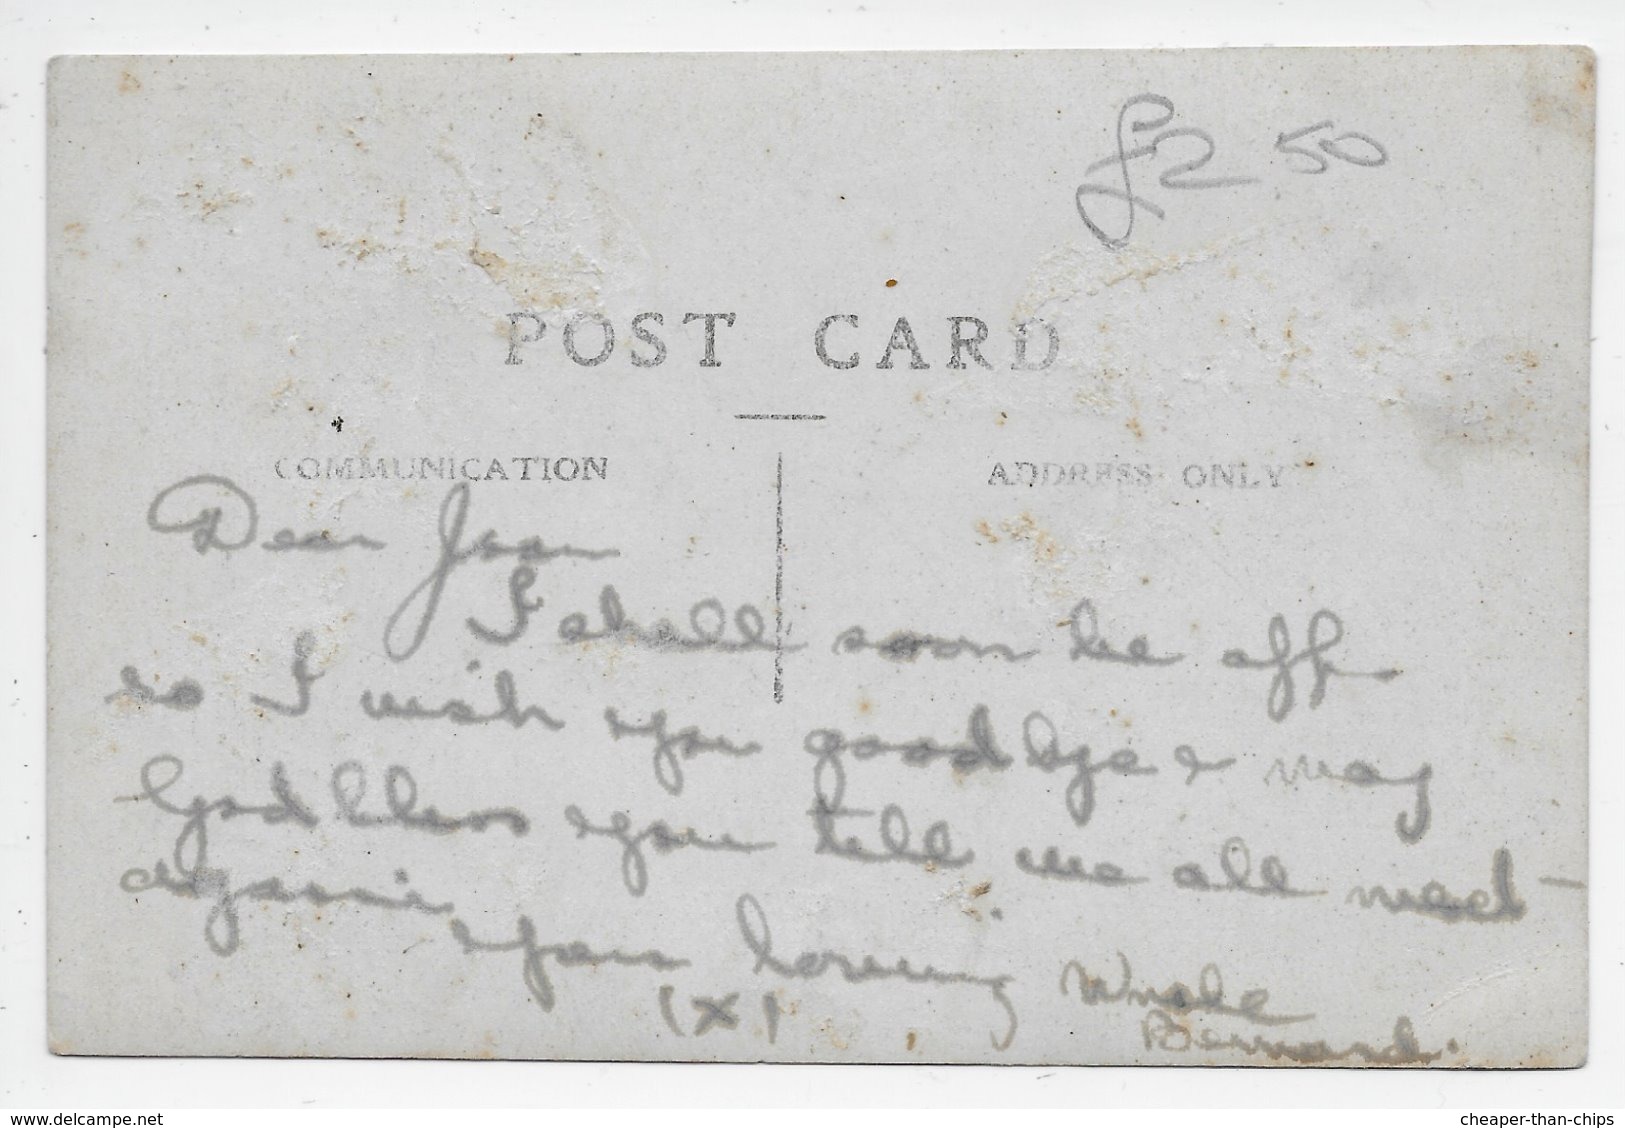 £2 50
POST CARD
COMMUNICATION
ADDRESS ONLY
Dear Joan
I shall soon be off
so I wish you goodbye & may
God bless you till we all meet
again your loving Uncle
(X) Bernard.
cheaper-than-chips
www.delcampe.net